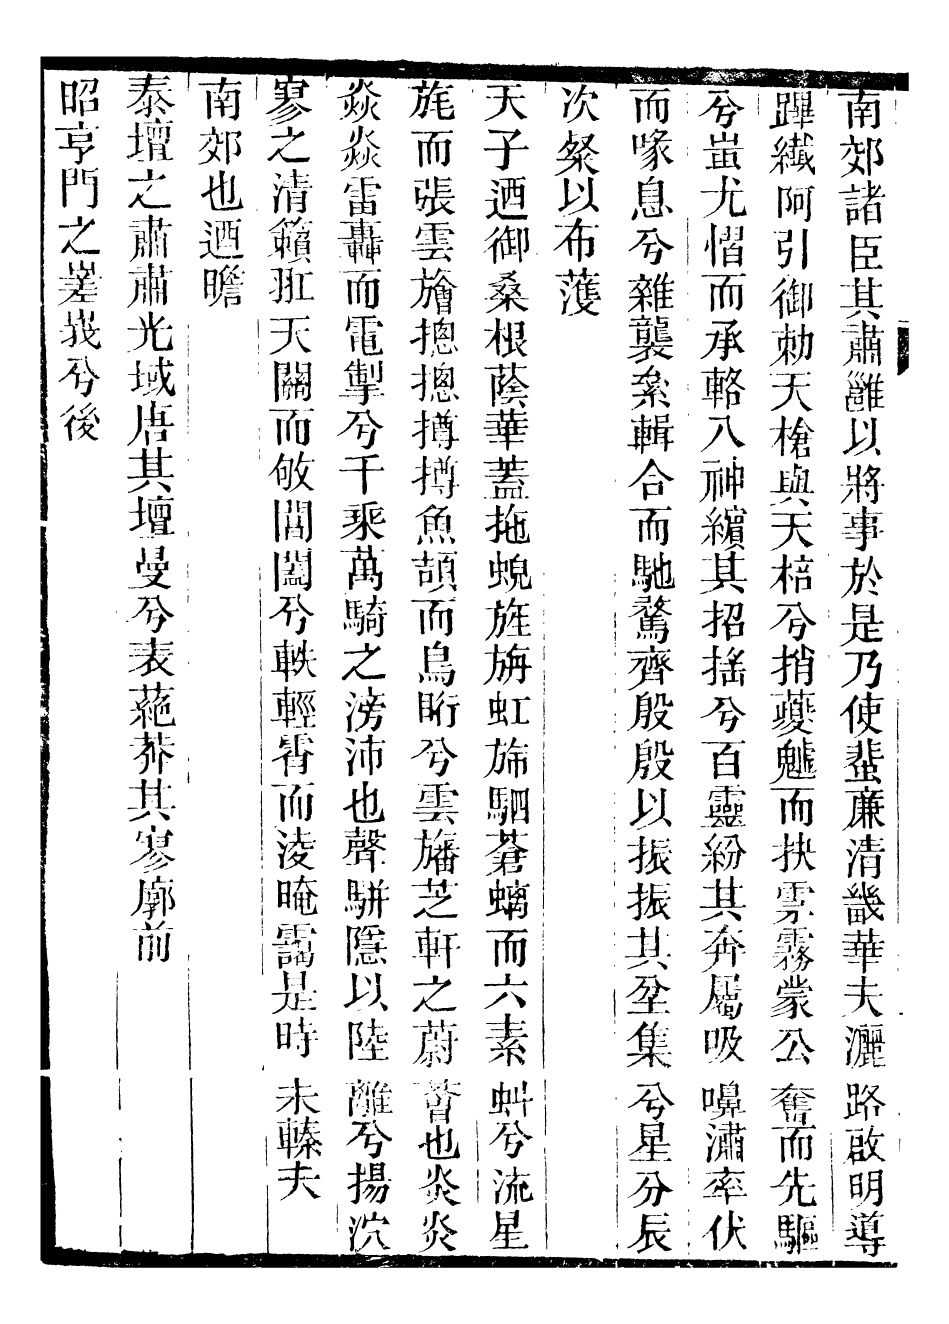 南郊諸臣其肅雝以將事於是乃使蜚廉清畿華夫灑路啟明導
蹕纎阿引御勅天槍與天棓兮捎夔魖而抶雰霧蒙公奮而先驅
兮蚩尤慴而承輅八神繽其招搖兮百靈紛其奔屬吸嚊潚率伏
而喙息兮雜襲絫輯合而馳騖齊殷殷以振振其坌集兮星分辰
次粲以布濩
天子迺御桑根蔭華葢拖蜺旌旃虹斾駟蒼螭而六素蚪兮流星
旄而張雲旝摠摠撙撙魚頡而鳥䀪兮雲旛芝軒之蔚薈也炎炎
焱焱雷轟而電掣兮千乘萬騎之滂沛也聲駢隱以陸離兮揚泬
寥之清籟羾天關而攽閶闔兮軼輕霄而淩晻靄是時未轃夫
南郊也迺瞻
泰壇之肅肅光域唐其壇曼兮表蕝莽其寥廓前
昭亨門之嵳峩兮後